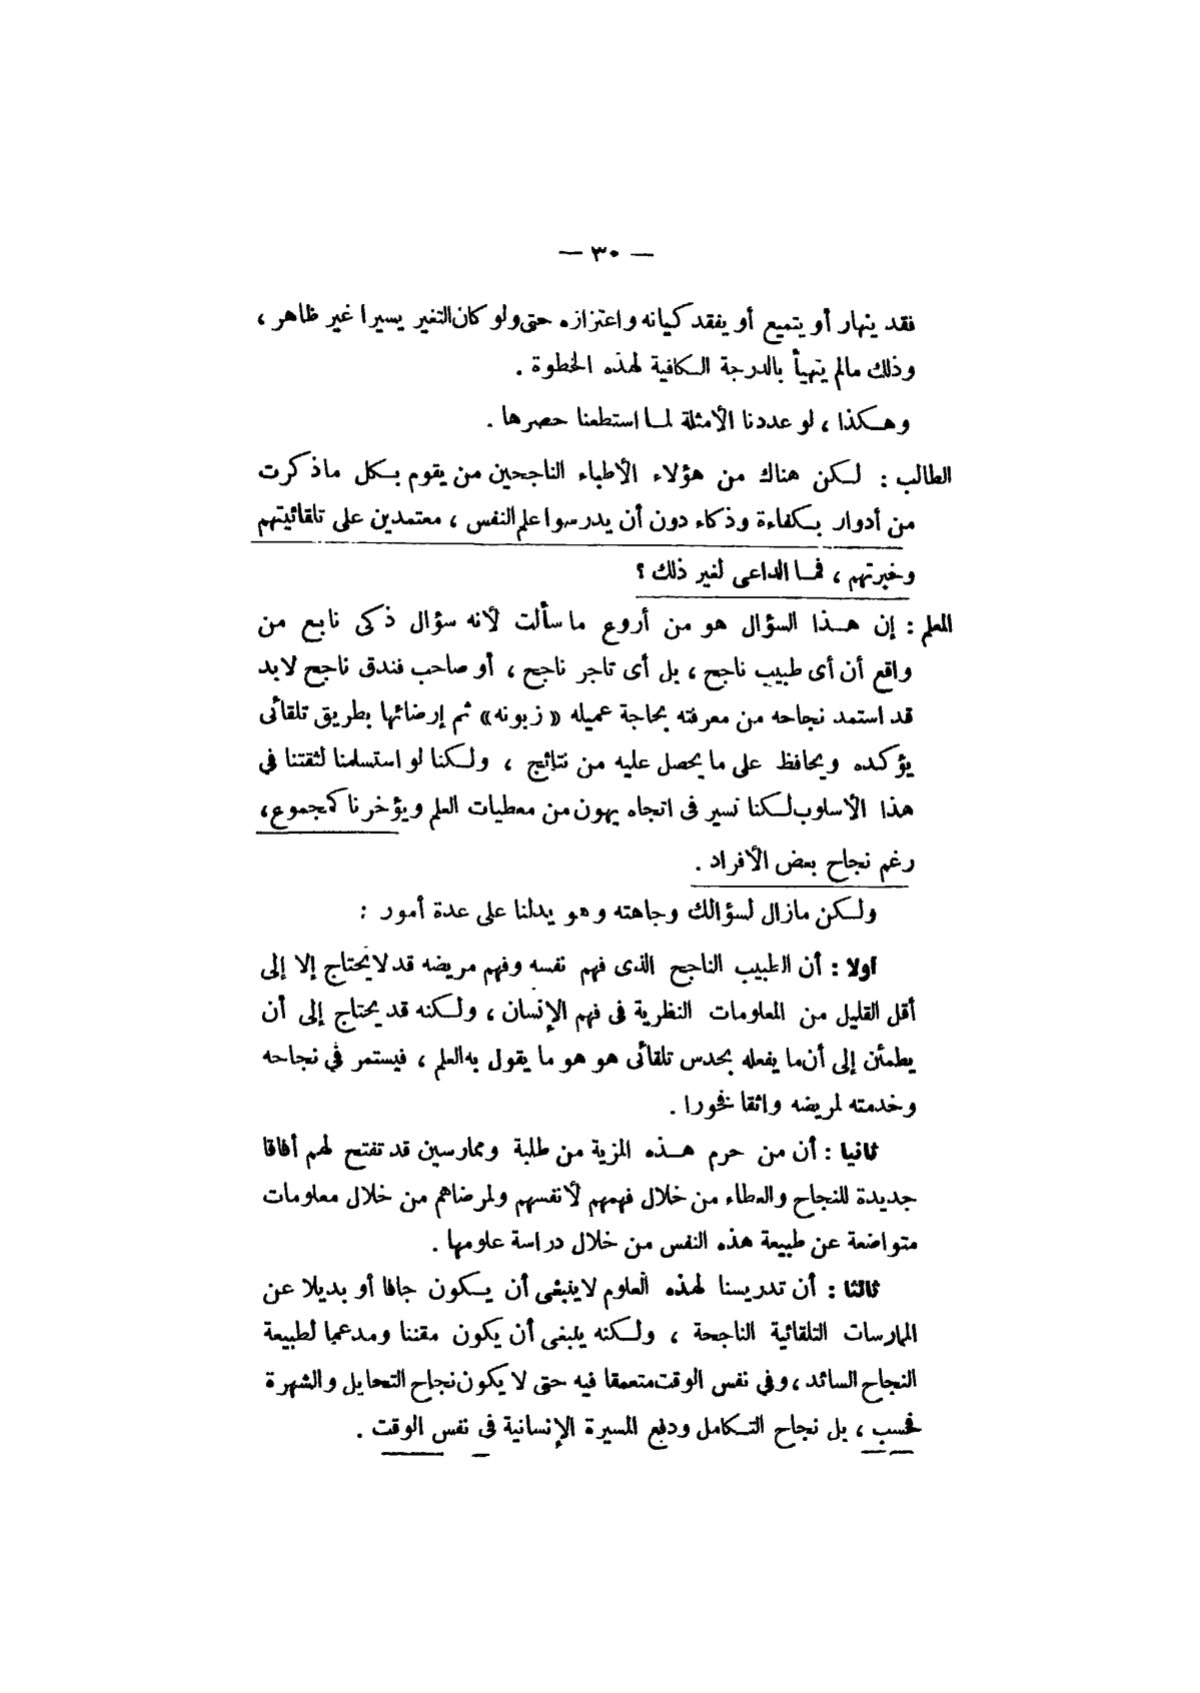 — ٣٠ —
فقد ينهار أو يتميع أو يفقد كيانه واعتزازه حتى ولو كان التغير يسيرا غير ظاهر ،
وذلك مالم يتهيأ بالدرجة الكافية لهذه الخطوة .
وهكذا ، لو عددنا الأمثلة لما استطعنا حصرها .
الطالب : لكن هناك من هؤلاء الأطباء الناجحين من يقوم بكل ماذكرت
من أدوار بكفاءة وذكاء دون أن يدرسوا علم النفس ، معتمدين على تلقائيتهم
وخبرتهم ، فما الداعى لغير ذلك ؟
المعلم : إن هذا السؤال هو من أروع ما سألت لأنه سؤال ذكى نابع من
واقع أن أى طبيب ناجح ، بل أى تاجر ناجح ، أو صاحب فندق ناجح لابد
قد استمد نجاحه من معرفته بحاجة عميله « زبونه » ثم إرضائها بطريق تلقائى
يؤكده ويحافظ على ما يحصل عليه من نتائج ، ولكنا لو استسلمنا لثقتنا فى
هذا الأسلوب لكنا نسير فى اتجاه يهون من معطيات العلم ويؤخرنا كمجموع ،
رغم نجاح بعض الأفراد .
ولكن مازال لسؤالك وجاهته وهو يدلنا على عدة أمور :
أولا : أن الطبيب الناجح الذى فهم نفسه وفهم مريضه قد لا يحتاج إلا إلى
أقل القليل من المعلومات النظرية فى فهم الإنسان ، ولكنه قد يحتاج إلى أن
يطمئن إلى أن ما يفعله بحدس تلقائى هو هو ما يقول به العلم ، فيستمر فى نجاحه
وخدمته لمريضه واثقا فخورا .
ثانيا : أن من حرم هذه المزية من طلبة وممارسين قد تفتح لهم أفاقا
جديدة للنجاح والعطاء من خلال فهمهم لأنفسهم ولمرضاهم من خلال معلومات
متواضعة عن طبيعة هذه النفس من خلال دراسة علومها .
ثالثا : أن تدريسنا لهذه العلوم لاينبغى أن يكون جافا أو بديلا عن
الممارسات التلقائية الناجحة ، ولكنه ينبغى أن يكون مقننا ومدعما لطبيعة
النجاح السائد ، وفى نفس الوقت متعمقا فيه حتى لا يكون نجاح التحايل والشهرة
فحسب ، بل نجاح التكامل ودفع المسيرة الإنسانية فى نفس الوقت .